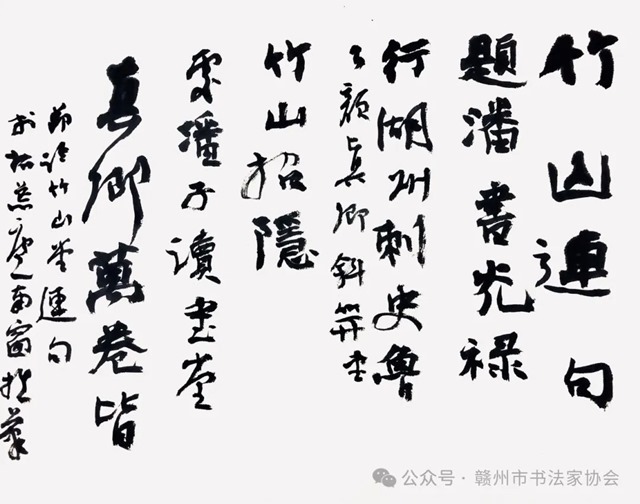 竹山連句
題潘書光禄
行湖州刺史魯
公顏真卿叙并書
竹山招隱
處潘子讀書堂
真卿萬卷皆
節臨竹山堂連句
南窗
公众号 · 赣州市书法家协会